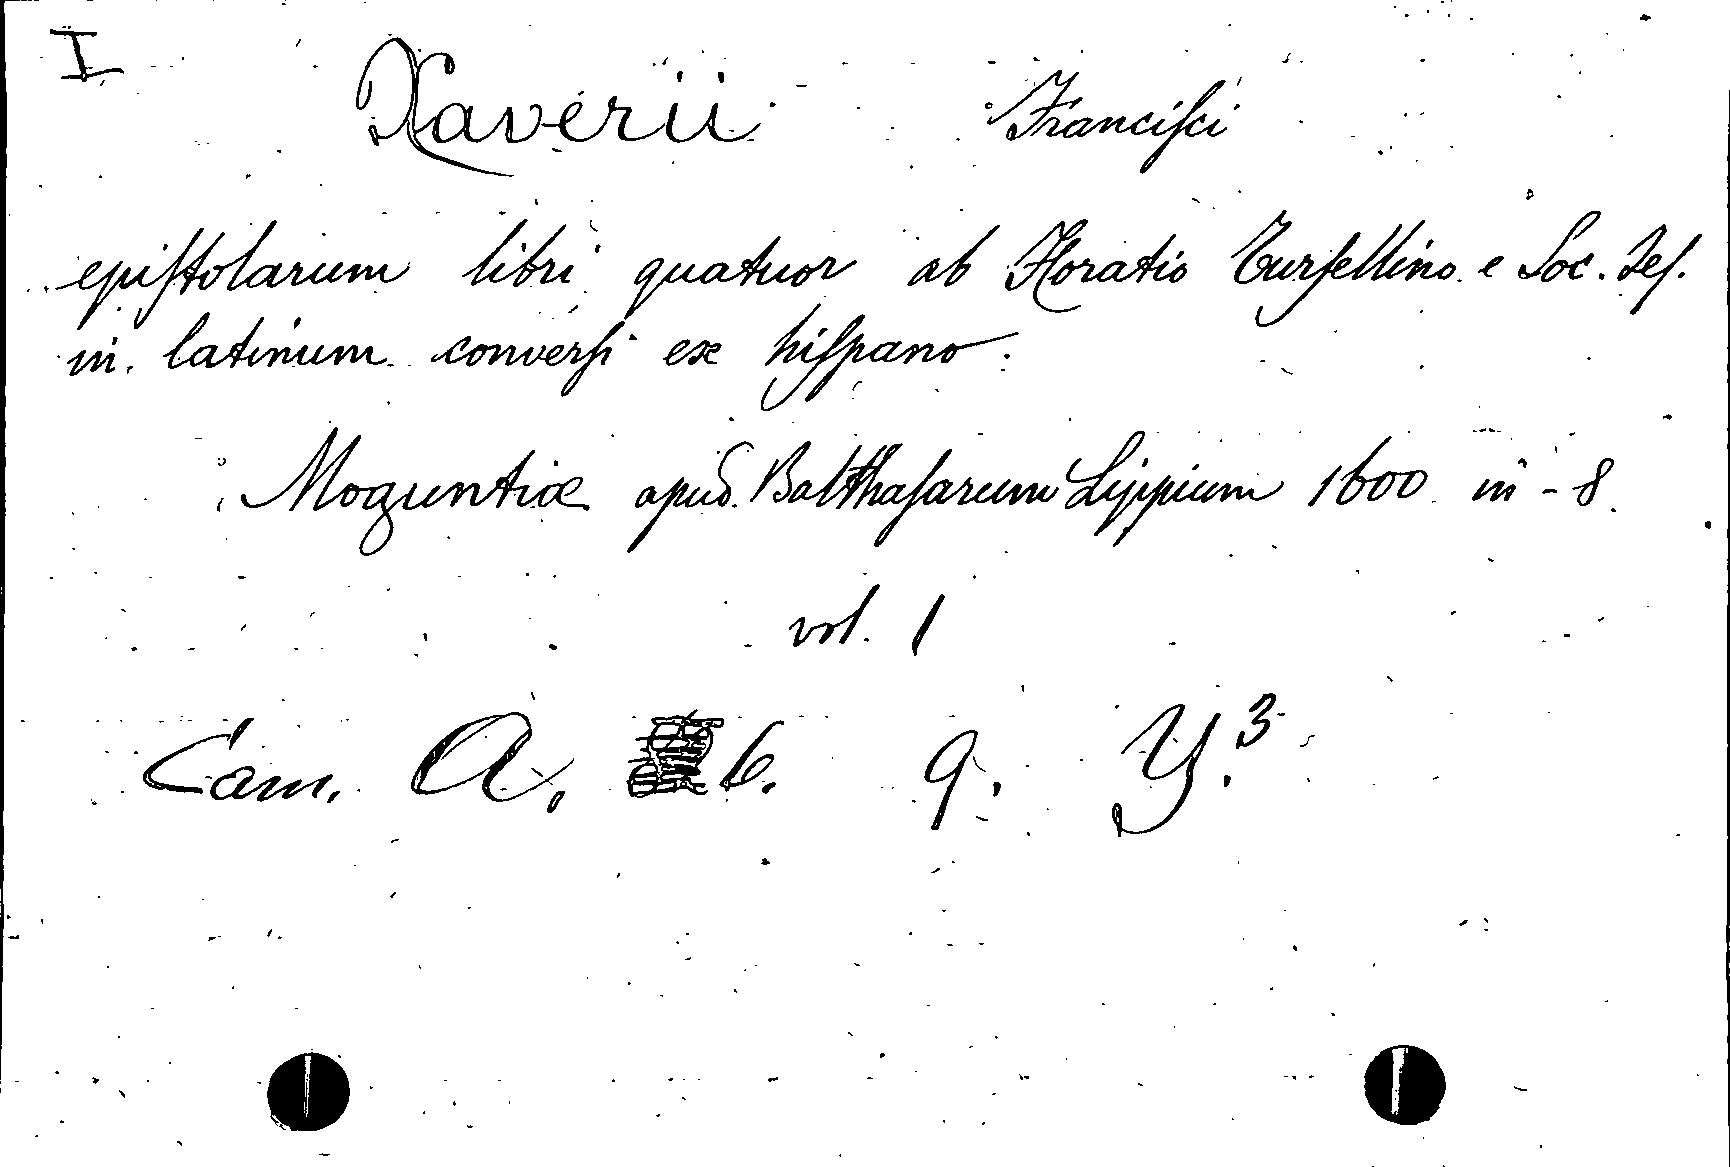 I
Xaverii Franciſci
epiſtolarum libri quatuor ab Horatio Turſellino e Soc. Jeſ.
in latinum converſi ex hiſpano.
Moguntiæ apud Balthaſarum Lippium 1600 in-8
vol. 1
Cam. A. 6. 9. Y.³